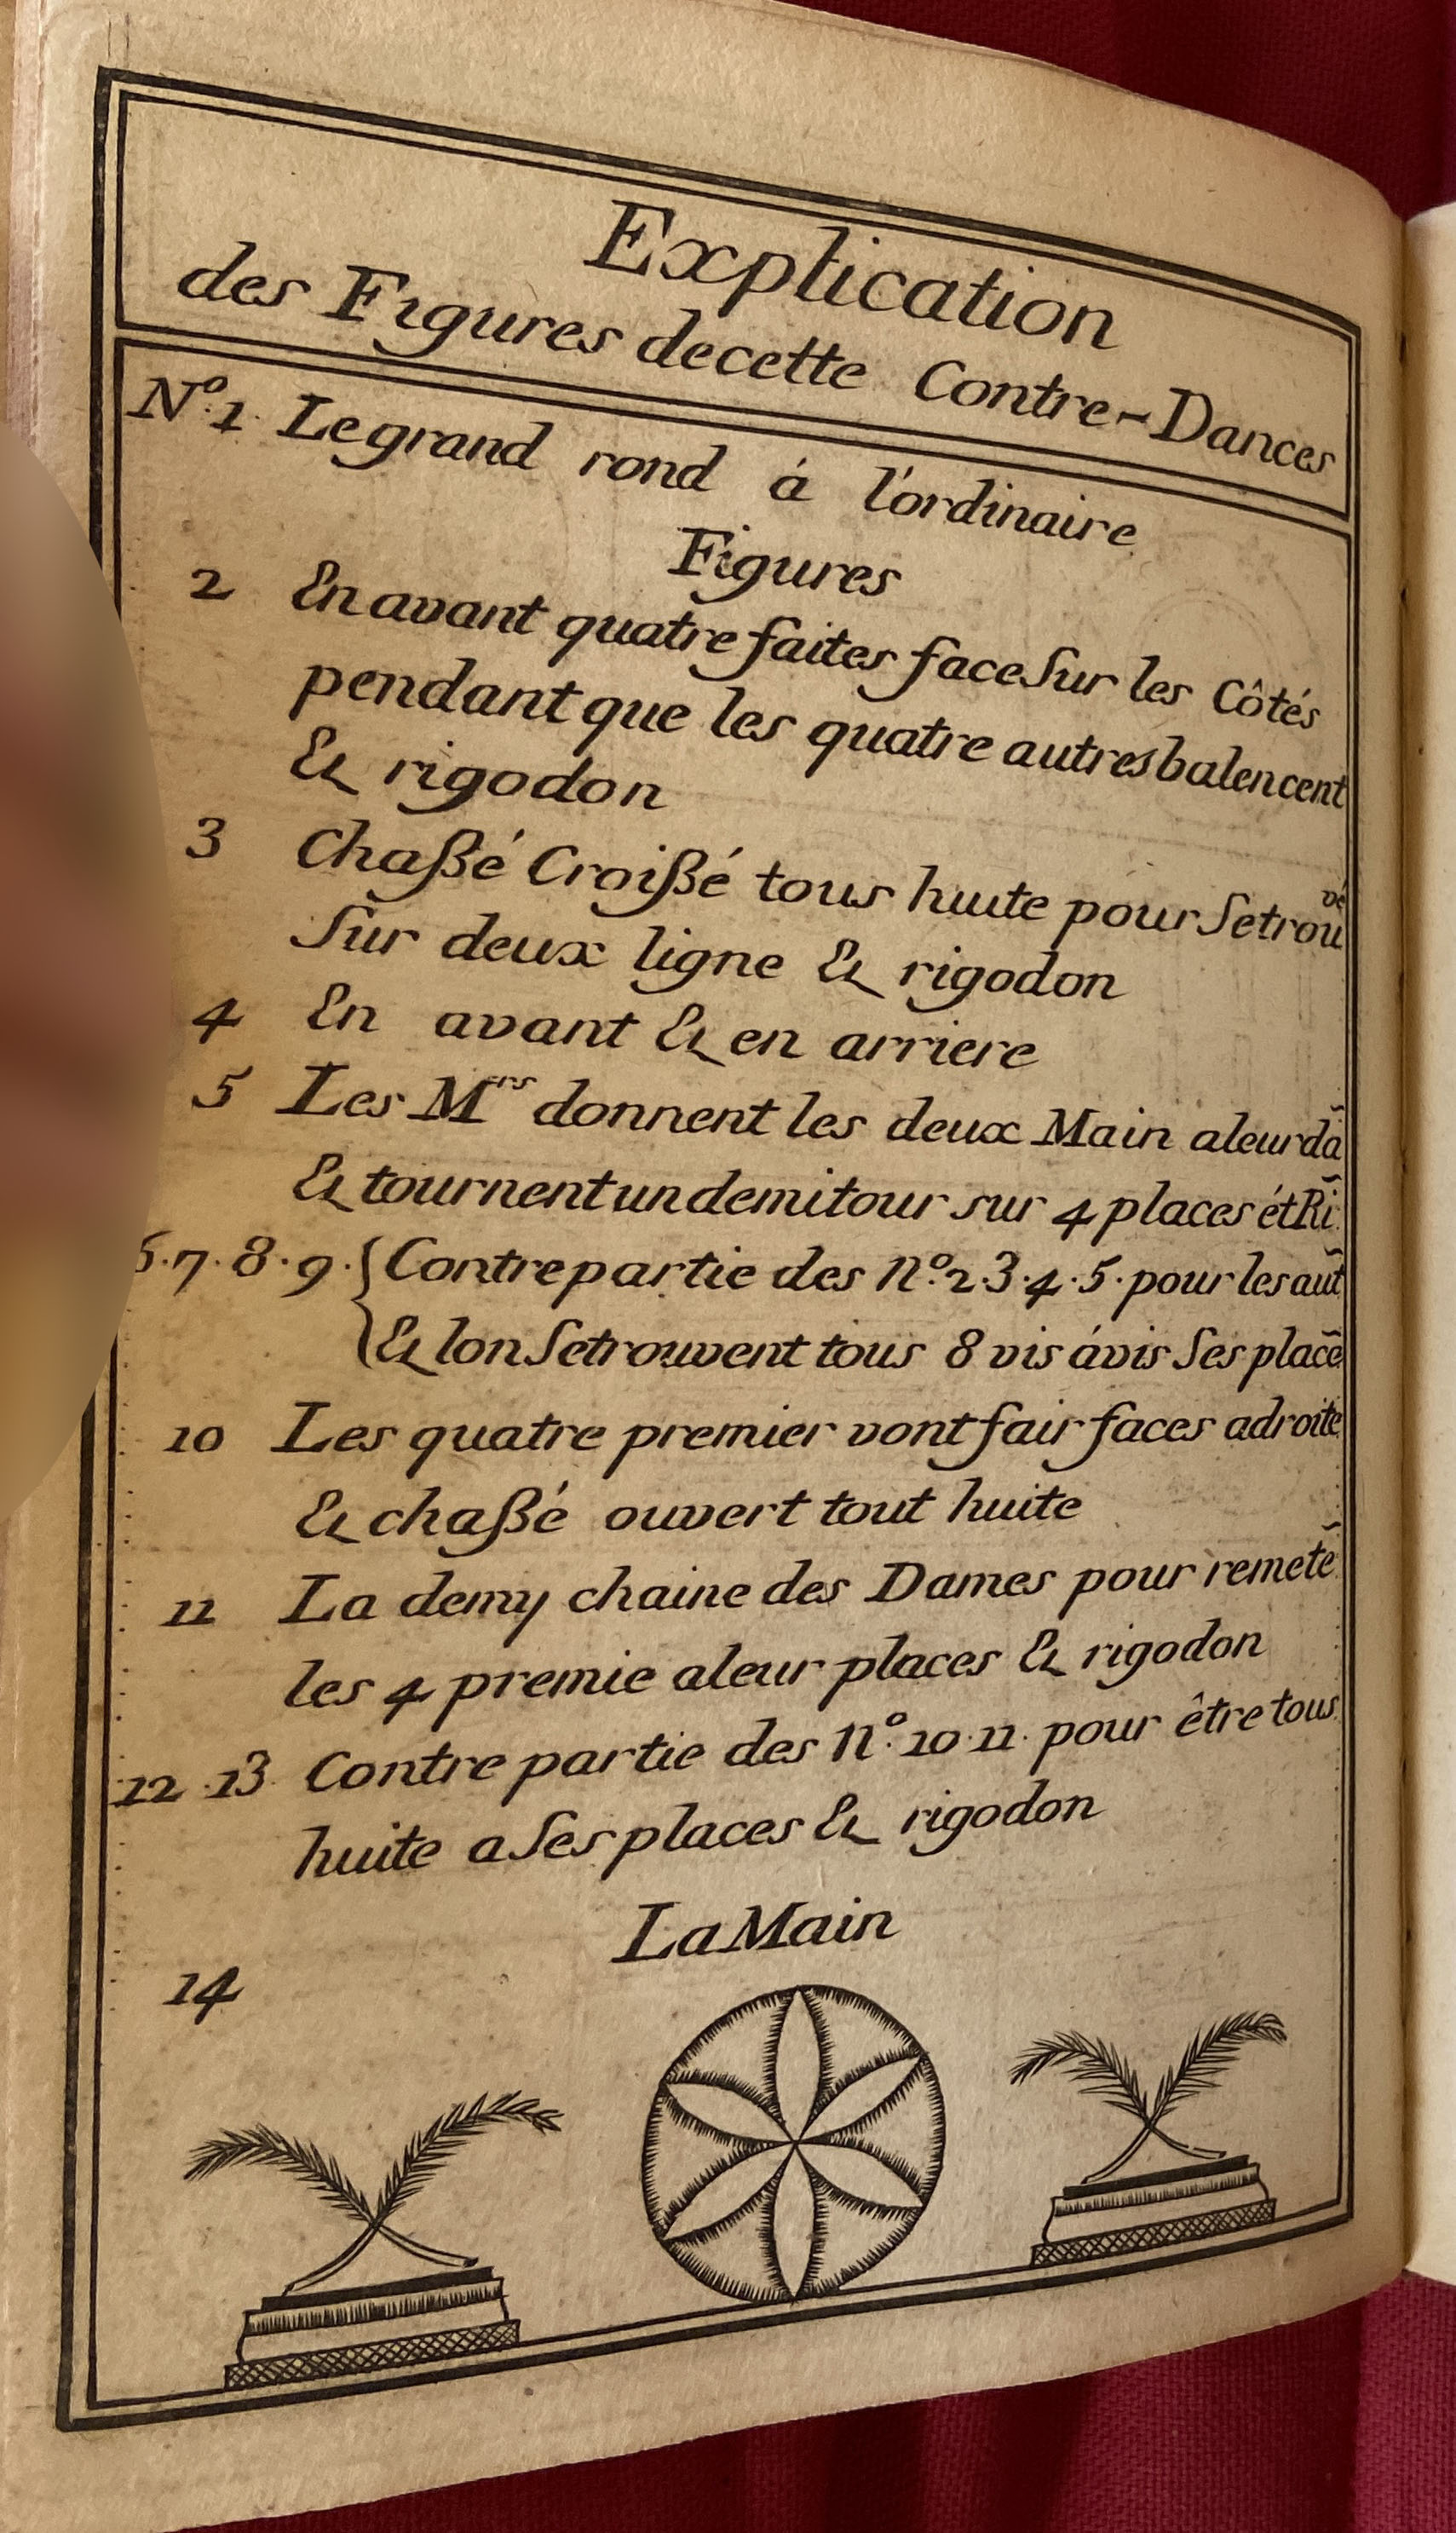 Explication
des Figures decette Contre-Dances
N.º 1. Le grand rond á l'ordinaire
Figures
2 En avant quatre faites face Sur les Côtés
pendant que les quatre autres balencent
& rigodon
3 Chaßé Croißé tous huite pour Setrouvé
Sur deux ligne & rigodon
4 En avant & en arriere
5 Les Mrs donnent les deux Main aleur dã
& tournent un demi tour sur 4 places ét Rĩ
6.7.8.9. { Contre partie des N.º 2.3.4.5. pour les aut̃
& lon Setrouvent tous 8 vis ávis Ses placẽ
10 Les quatre premier vont fair faces adroite
& chaßé ouvert tout huite
11 La demy chaine des Dames pour remetẽ
les 4 premie aleur places & rigodon
12 13 Contre partie des N.º 10 11. pour être tous
huite a Ses places & rigodon
La Main
14